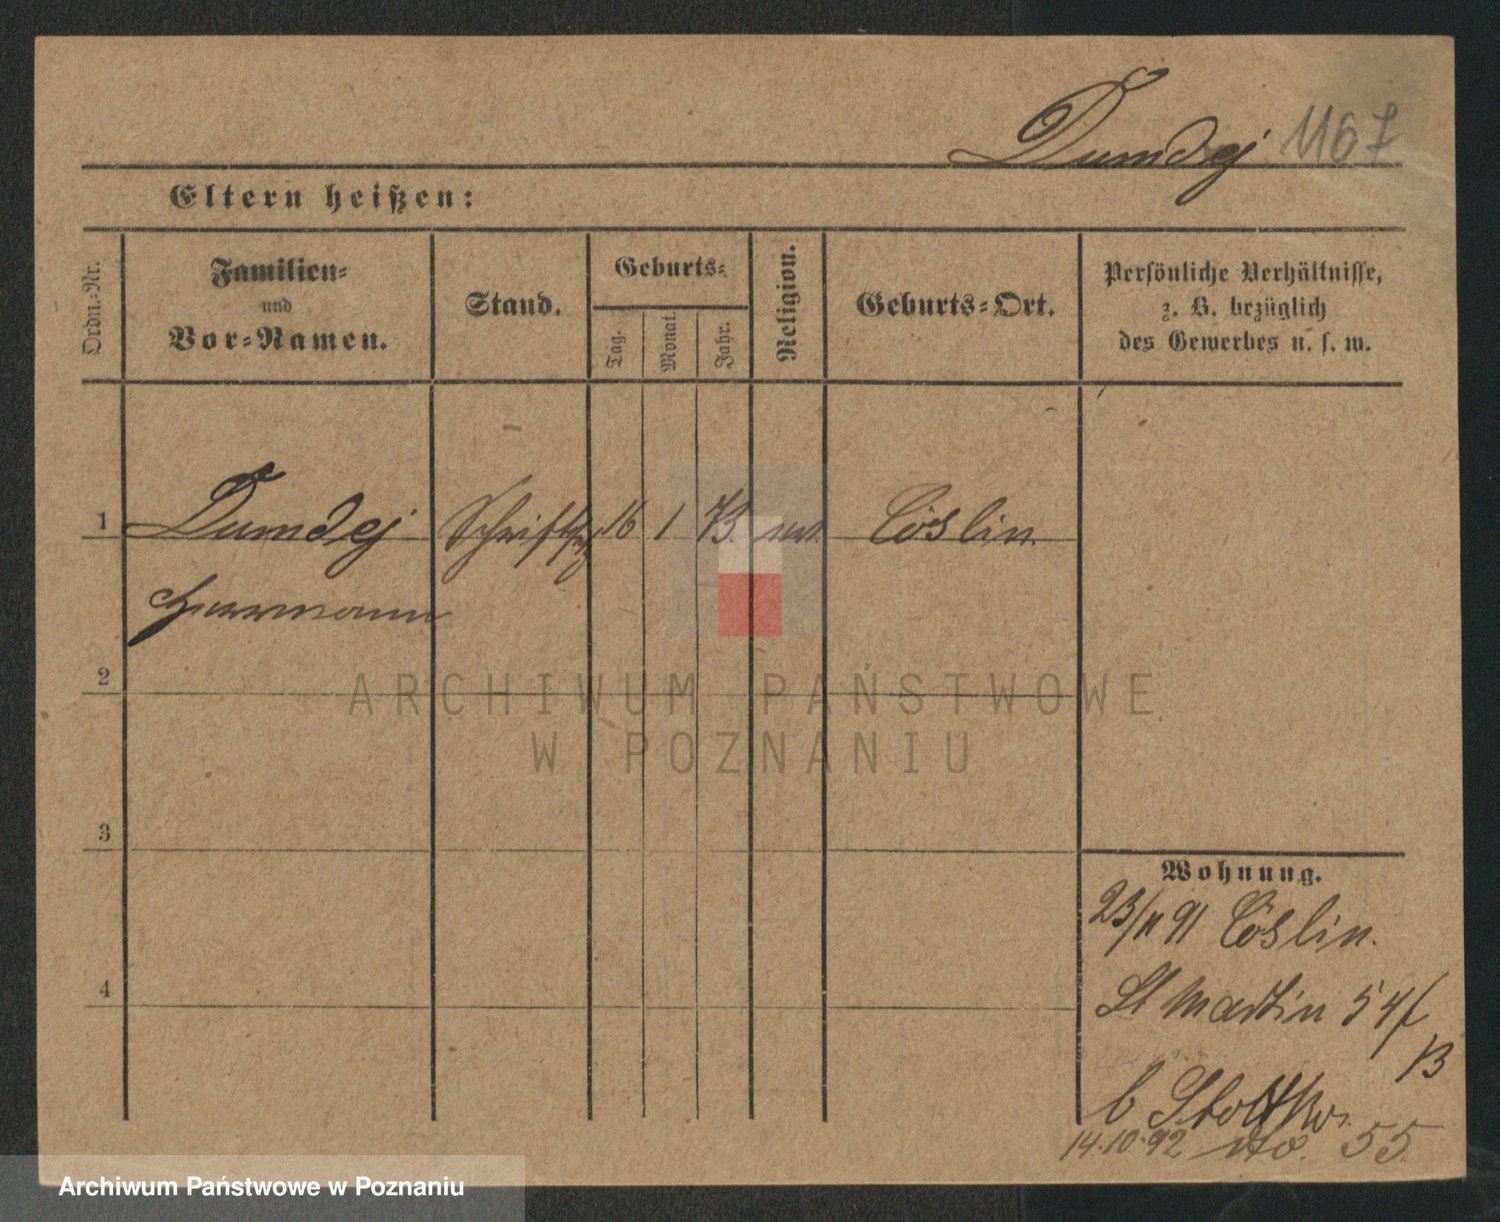 Dumdey 1167
Eltern heißen:
Ordn.-Nr.
Familien-
und
Vor-Namen.
Stand.
Geburts-
Tag.
Monat.
Jahr.
Religion.
Geburts-Ort.
Persönliche Verhältnisse,
z. B. bezüglich
des Gewerbes u. s. w.
1 Dumdey 16 1 73. Cöslin.
Herrmann
2
3
4
Wohnung.
23/11 91 Cöslin.
St Martin 54/
13
b
14.10.92 55
ARCHIWUM PAŃSTWOWE
W POZNANIU
Archiwum Państwowe w Poznaniu